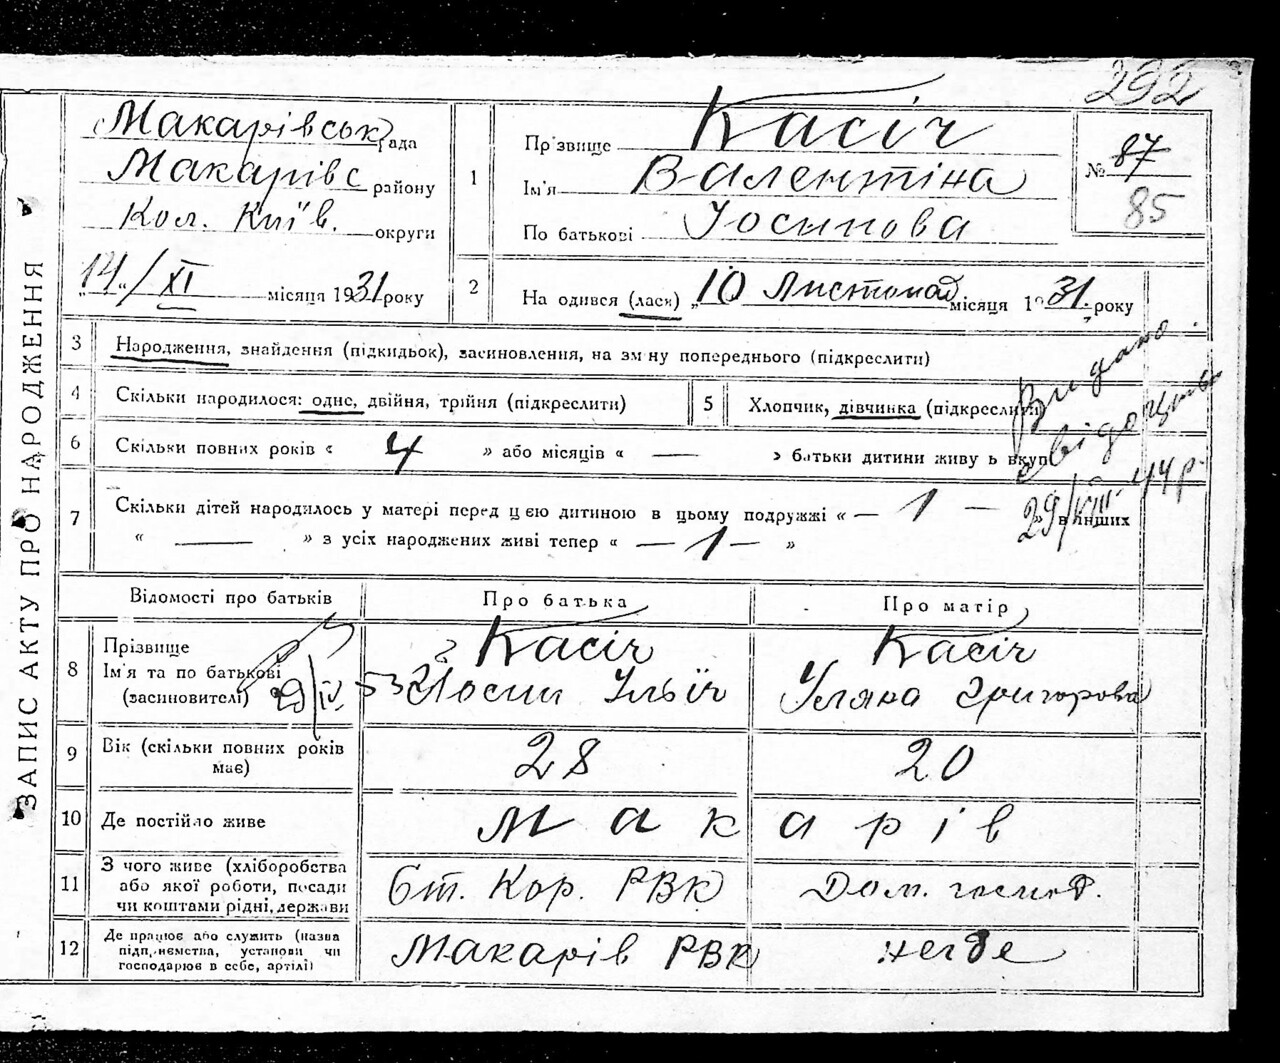 292
ЗАПИС АКТУ ПРО НАРОДЖЕННЯ
Макарівськ рада
Макарівс району
Кол. Київ. округи
„14“/XI місяця 1931 року
1 Прізвище Касіч
Ім'я Валентіна
По батькові Іосипова
№ 87
85
2 На одився (лася) „10 Листопад місяця 1931. року
3 Народження, знайдення (підкидьок), засиновлення, на зм ну попереднього (підкреслити)
4 Скільки народилося: одне, двійня, трійня (підкреслити)
5 Хлопчик, дівчинка (підкреслити)
6 Скільки повних років « 4 » або місяців « — » батьки дитини живу ь вкупі
Видано
свідоцтво
29/VIII 44 р.
7 Скільки дітей народилось у матері перед цією дитиною в цьому подружжі « — 1 — » в інших
« — » з усіх народжених живі тепер « — 1 — »
Відомості про батьків Про батька Про матір
8 Прізвище Касіч Касіч
Ім'я та по батькові Йосип Ільїч Уляна Григорова
(засиновителі)
29/IV 53
9 Вік (скільки повних років 28 20
має)
10 Де постійно живе Макарів
11 З чого живе (хліборобства
або якої роботи, посади Ст. Кор. РВК Дом. господ.
чи коштами рідні, держави
12 Де працює або служить (назва
підприємства, установи чи Макарів РВК негде
господарює в себе, артілі)